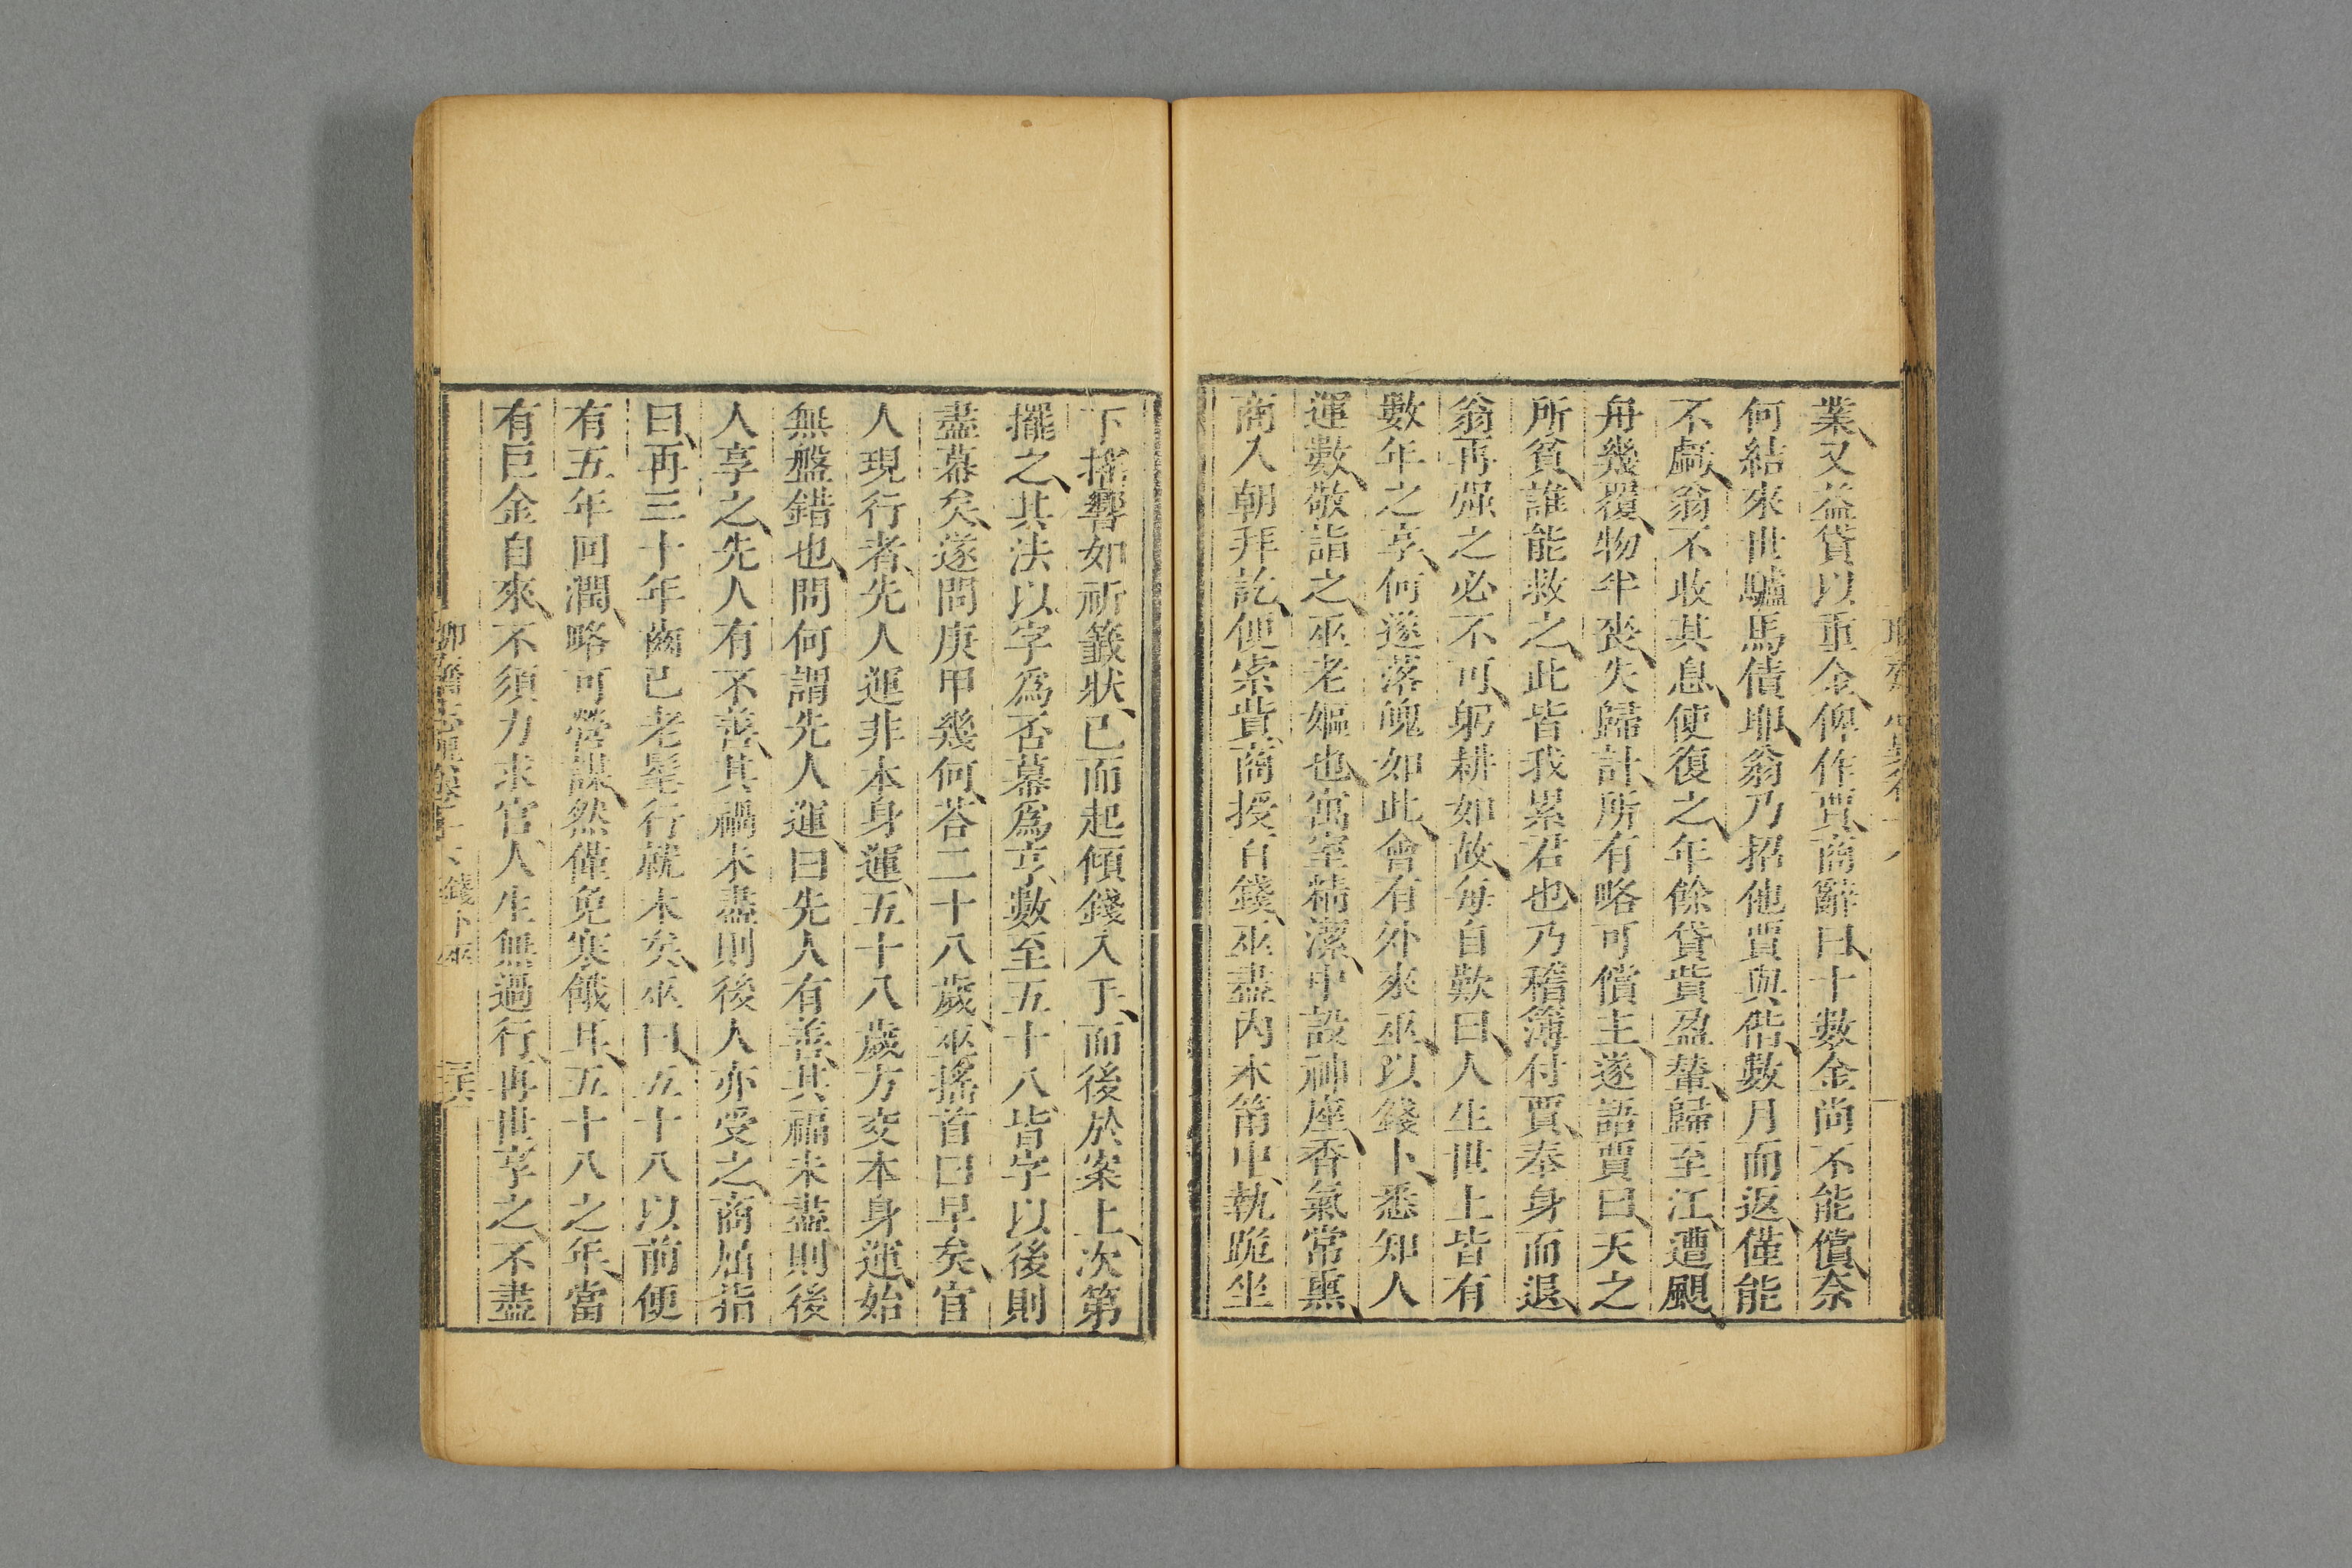 業又益貸以重金俾作賈商辭曰十數金尚不能償奈
何結來世驢馬債耶翁乃招他賈與偕數月而返僅能
不虧翁不收其息使復之年餘貸貲盈輦歸至江遭颶
舟幾覆物半喪失歸計所有略可償主遂語賈曰天之
所貧誰能救之此皆我累君也乃稽簿付賈奉身而退
翁再强之必不可躬耕如故每自歎曰人生世上皆有
數年之享何遂落魄如此會有外來巫以錢卜悉知人
運數敬詣之巫老嫗也寓室精潔中設神座香氣常熏
商人朝拜訖便索貲商授百錢巫盡內木筩中執跪坐
下搖響如祈籤狀已而起傾錢入手而後於案上次第
擺之其法以字爲否幕爲亨數至五十八皆字以後則
盡幕矣遂問庚甲幾何荅二十八歲巫搖首曰早矣官
人現行者先人運非本身運五十八歲方交本身運始
無盤錯也問何謂先人運曰先人有善其福未盡則後
人享之先人有不善其禍未盡則後人亦受之商屈指
曰再三十年齒已老髦行就木矣巫曰五十八以前便
有五年回潤略可營謀然僅免寒餓耳五十八之年當
有巨金自來不須力求官人生無過行再世享之不盡
錢卜巫